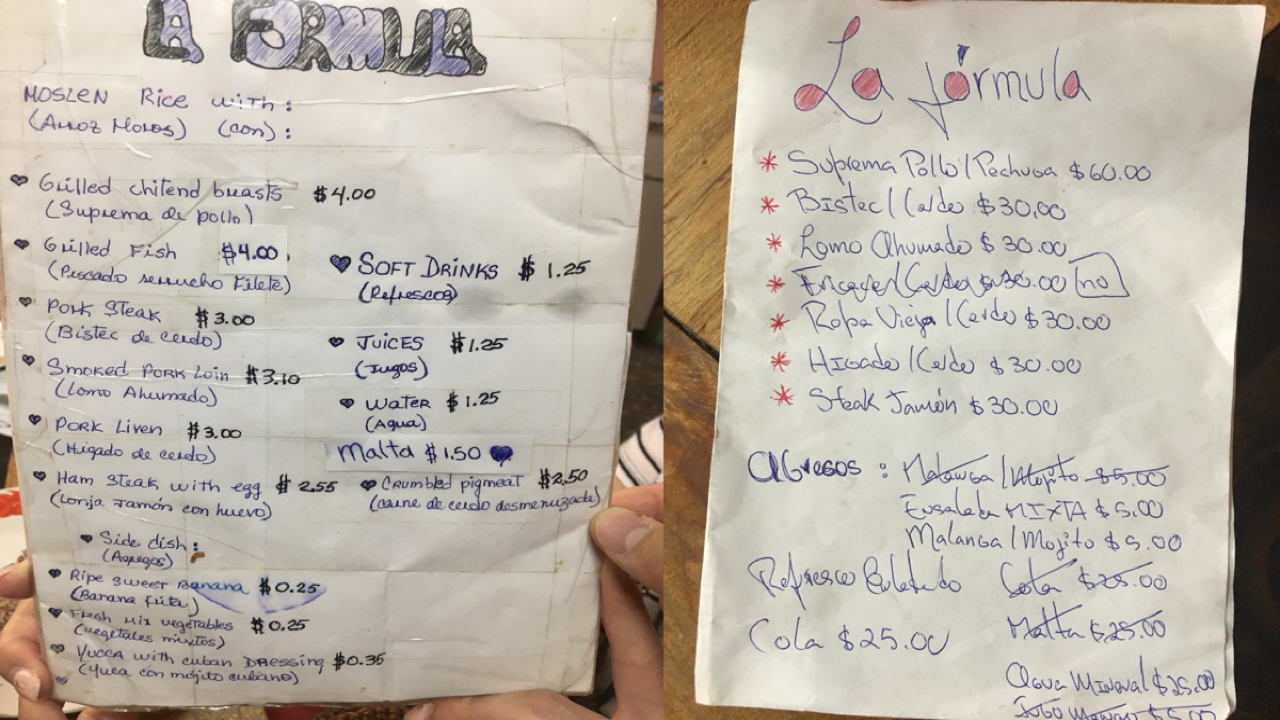 LA FORMULA
MOSLEN Rice with:
(Arroz Moros) (con):
Grilled chitend breasts $4.00
(Suprema de pollo)
Grilled Fish $4.00
(Pescado serrucho Filete)
Pork Steak $3.00
(Bistec de cerdo)
Smoked Pork Loin $3.10
(Lomo Ahumado)
Pork Liven $3.00
(Higado de cerdo)
Ham Steak with egg $2.55
(Lonja Jamón con huevo)
SOFT DRINKS $1.25
(Refrescos)
JUICES $1.25
(Jugos)
WATER $1.25
(Agua)
Malta $1.50
Crumbled pigmeat $2.50
(carne de cerdo desmenuzada)
Side dish:
(Agregos)
Ripe sweet Banana $0.25
(Banana frita)
Fresh Mix vegetables $0.25
(vegetales mixtos)
Yucca with cuban Dressing $0.35
(Yuca con mojito cubano)
La fórmula
* Suprema Pollo/Pechuga $60.00
* Bistec/Cerdo $30.00
* Lomo Ahumado $30.00
* $30.00 no
* Ropa Vieja/Cerdo $30.00
* Higado/Cerdo $30.00
* Steak Jamón $30.00
Agregos: Malanga/Mojito $5.00
Ensalada MIXTA $5.00
Malanga/Mojito $5.00
Refresco Enlatado Cola $25.00
Cola $25.00 Malta $25.00
Agua Mineral $25.00
$5.00